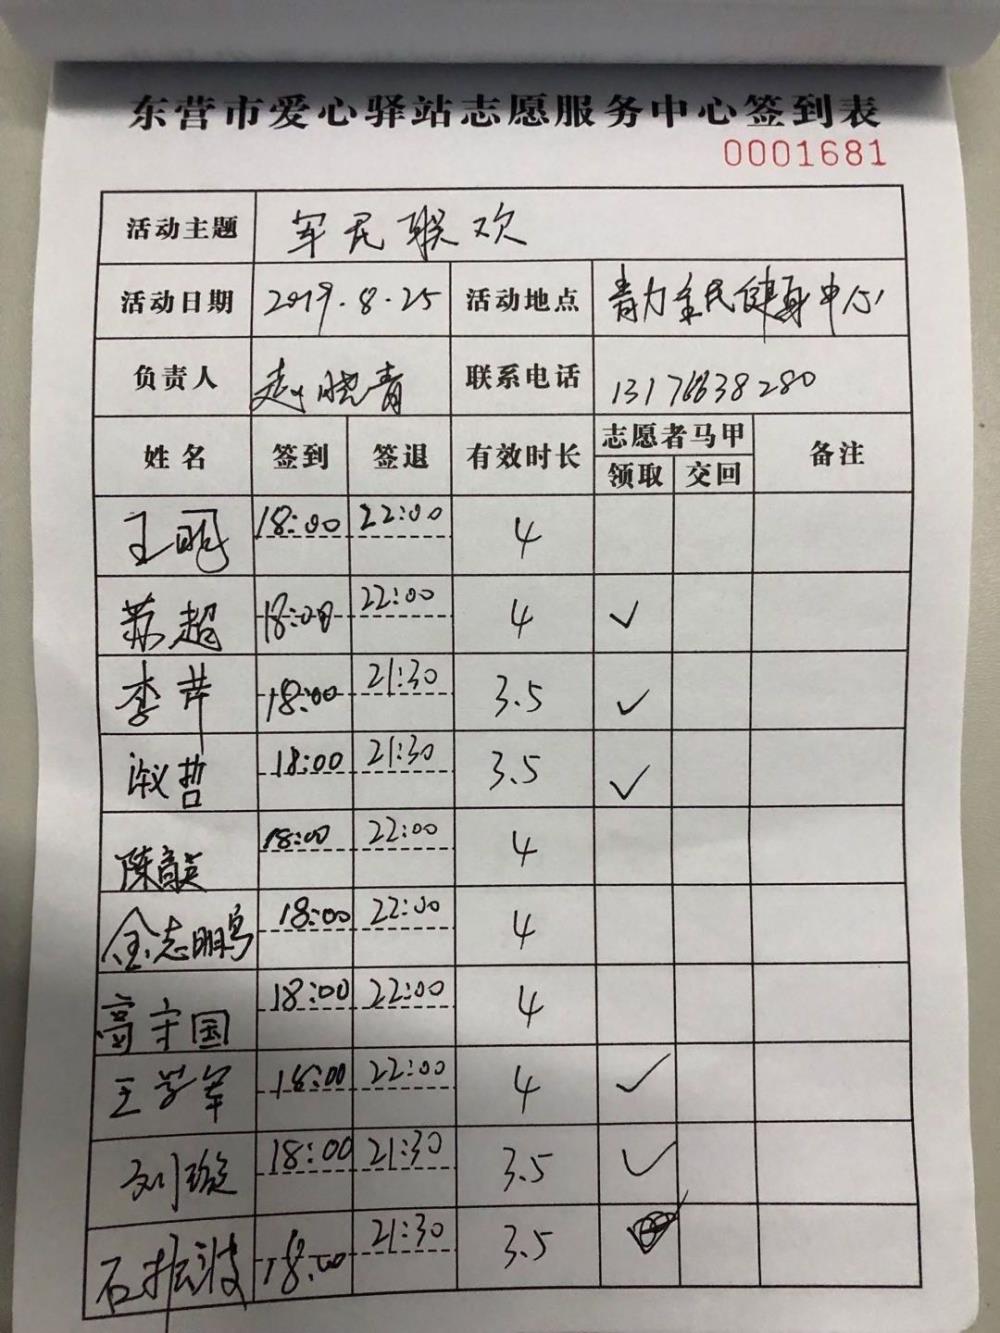 东营市爱心驿站志愿服务中心签到表
0001681
活动主题 军民联欢
活动日期 2019.8.25 活动地点 青力全民健身中心
负责人 赵晓青 联系电话 13176638280
姓名 签到 签退 有效时长 志愿者马甲 备注
领取 交回
王明 18:00 22:00 4
苏超 18:00 22:00 4 ✓
李芹 18:00 21:30 3.5 ✓
淑哲 18:00 21:30 3.5 ✓
陈 18:00 22:00 4
金志鹏 18:00 22:00 4
高守国 18:00 22:00 4
王学军 18:00 22:00 4 ✓
刘璇 18:00 21:30 3.5 ✓
石振波 18:00 21:30 3.5